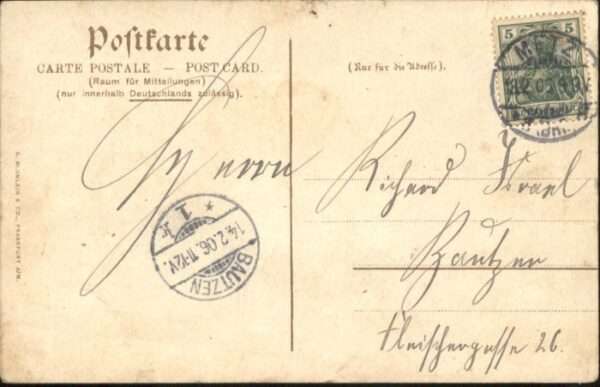 Postkarte
CARTE POSTALE — POST CARD.
(Raum für Mitteilungen)
(nur innerhalb Deutschlands zulässig).
(Nur für die Adresse).
5 5
Herrn
Richard Israel
Bautzen
Fleischergasse 26.
BAUTZEN
14.2.06.11-12V.
* 1 k